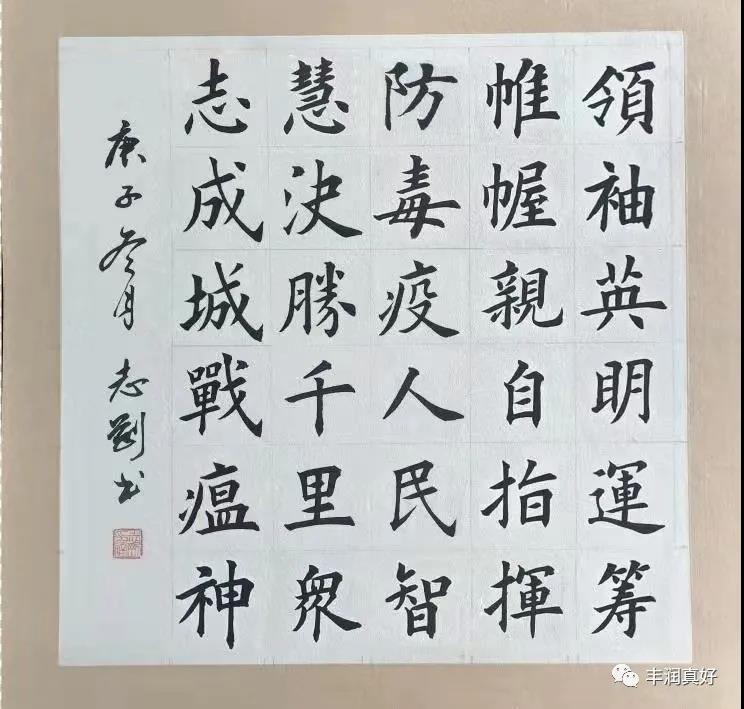 領袖英明運筹
帷幄親自指揮
防毒疫人民智
慧決勝千里眾
志成城戰瘟神
庚子冬月 志剛书
丰润真好